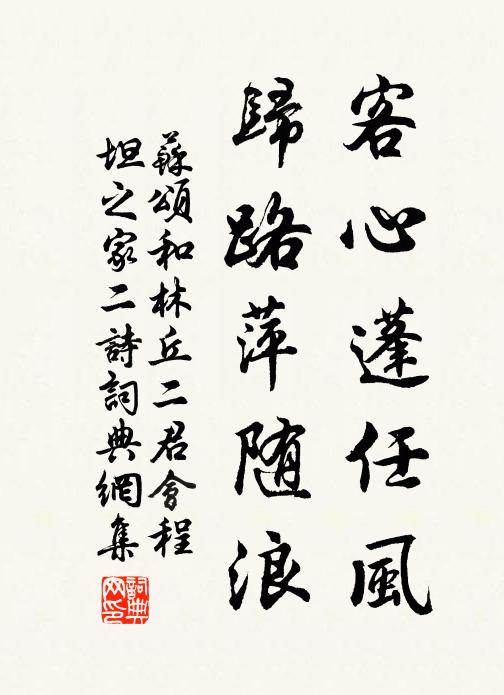 客心蓬任風
歸路萍随浪
蘇頌和林丘二君會程
坦之家二詩詞典網集
詞典網印